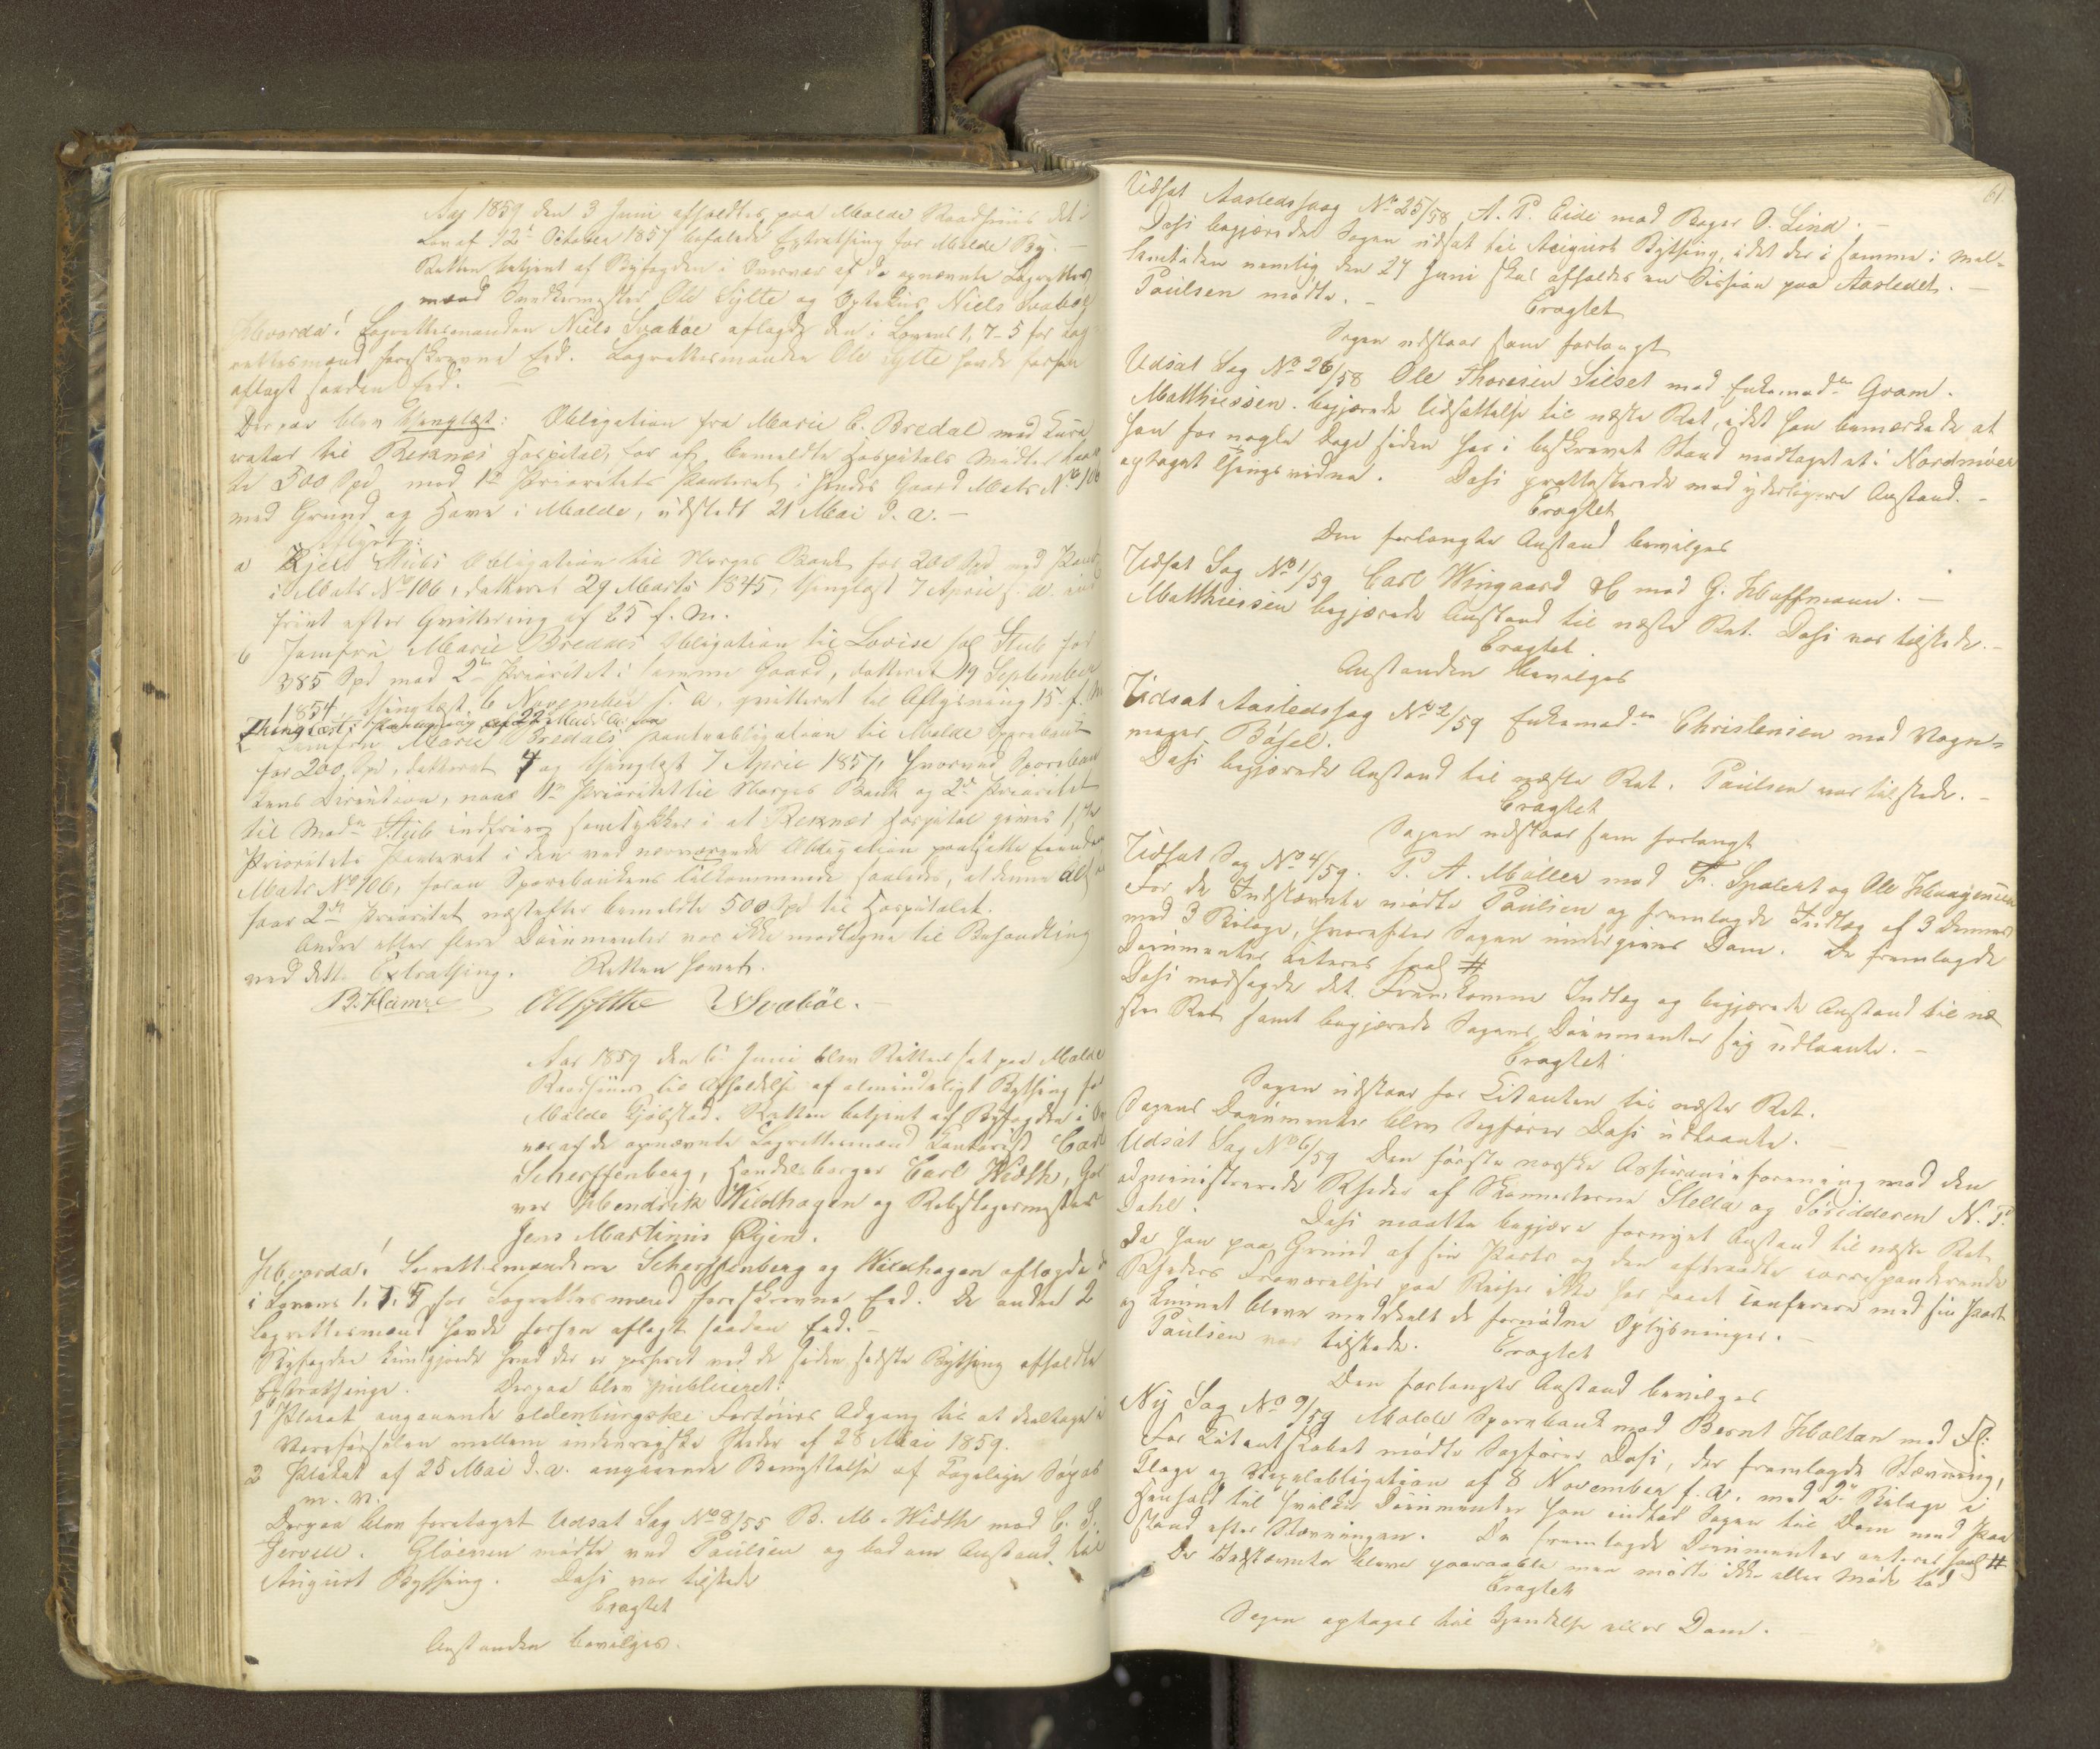 Aar 1859 den 3 Juni afholdtes paa Molde Raadhuus det i
Lov af 12te October 1857 befalede Extrathing for Molde By. —
Retten betjent af Byfogden i Overvær af de opnævnte Lagrettes
mænd Snedkermester Ole Sylte og Niels Svaboe
Hvorda! Lagrettesmanden Niels Svaboe aflagde den i Lovens 1, 7-5 for Lag
rettesmænd foreskrevne Eed. Lagrettesmanden Ole Sylte havde forhen
aflagt saadan Eed. —
Derpaa blev thinglæst: Obligation fra Marie C. Bredal med Cura
rator til Reknæs Hospital, for af bemeldte Hospitals Midler laan
te 500 Spd mod 1ste Prioritets Panteret i hendes Gaard Matr No 106
med Grund og Have i Molde, udstedt 21 Mai d. a. —
Aflyst:
a Kjeld Stubs Obligation til Norges Bank for 200 Spd med Pant
i Matr No 106, datteret 29 Marts 1845, thinglæst 7 April s. a. ind
friet efter Qvittering af 25 f. M.
b Jomfru Marie Bredals Obligation til Lovise sal Stub for
385 Spd med 2den Prioritet i samme Gaard, datteret 19 September
1854, thinglæst 6 November s. a. qvitteret til Aflysning 15 f. M
Thinglæst: af 22 Mai
Jomfru Marie Bredals Panteobligation til Molde Sparebank
for 200 Spd, datteret 4 og thinglæst 7 April 1857, hvorved Spareban
kens Direction, naar 1ste Prioritet til Norges Bank og 2den Prioritet
til Madm Stub indfries samtykker i at Reknæs Hospital gives 1ste
Prioritets Panteret i den ved nærværende Obligation pantsatte Eiendom
Matr No 106, foran Sparebankens Tilkommende saaledes, at denne
faar 2den Prioritet næstefter bemeldte 500 Spd til Hospitalet.
Andre eller flere Documenter var ikke modtagne til Behandling
ved dette Extrathing. Retten hævet.
B. Hamre O Sylthe N Svaböe. —
Aar 1859 den 6te Juni blev Retten sat paa Molde
Raadhuus til Afholdelse af almindeligt Bything for
Molde Kjøbstad. Retten betjent af Byfogden i Over
vær af de opnævnte Lagrettesmænd Kontorist Carl
Scherffenberg, Handelsborger Carl Width, Gar
ver Hendrik Wildhagen og Rebslagermester
Jens Martinus Øijen.
Hvorda! Lagrettesmændene Scherffenberg og Wildhagen aflagde
i Lovens 1. 7. 5 for Lagrettesmænd foreskrevne Eed. De andre 2
Lagrettesmænd havde forhen aflagt saadan Eed. —
Byfogden kundgjorde hvad der er passeret ved de siden sidste Bything afholdte
Extrathinge. Derpaa blev publiceret:
1 Placat angaaende oldenburgske Fartøiers Adgang til at deeltage i
Vareførselen mellem indenrigske Steder af 28 Mai 1859.
2 Plakat af 25 Mai d. a. angaaende Benyttelse af
m. v.
Derpaa blev foretaget Udsat Sag No 8/55 B. M. Width mod C. S.
Jervell. mødte ved Paulsen og bad om Anstand til
August Bything. Dahs var tilstede
Eragtet
Anstanden bevilges.
61.
Udsat Aastedssag No 25/58 A. P. Eide mod Bager O. Lind. —
Dahs begjærede Sagen udsat til August Bything, idet der i samme i Mel-
lemtiden nemlig den 27 Juni skal afholdes en Session paa Aastedet. —
Paulsen mødte. —
Eragtet
Sagen udstaar som forlangt
Udsat Sag No 26/58 Ole Thoresen Silset mod Enkemadm Gram.
Matthiessen begjærede Udsættelse til næste Ret, idet han bemærkede at
han for nogle Dage siden har i beskrevet Stand modtaget et i Nordmöer
optaget Thingsvidne. Dahs protesterede mod yderligere Anstand. —
Eragtet
Den forlangte Anstand bevilges
Udsat Sag No 1/59 Carl Wingaard &C mod G. Hoffmann. —
Matthiessen begjærede Anstand til næste Ret. Dahs var tilstede. —
Eragtet.
Anstanden Bevilges
Udsat Aastedssag No 2/59 Enkemadm Christensen mod Vogn-
mager Bösel.
Dahs begjærede Anstand til næste Ret. Paulsen var tilstede. —
Eragtet
Sagen udstaar som forlangt
Udsat Sag No 4/59. P. A. Möller mod Fr. Spolert og Ole Haagensen
For de Indstævnte mødte Paulsen og fremlagde Indlæg af 3 dennes
med 3 Bilage, hvorefter Sagen indergives Dom. De fremlagde
Documenter acteres saal #
Dahs modsagde det Fremkomne Indlæg og begjærede Anstand til næ
ste Ret samt begjærede Sagens Documenter sig udlaante. —
Eragtet
Sagen udstaar for Citanten til næste Ret.
Sagens Documenter blev Sagfører Dahs udlaante. —
Udsat Sag No 6/59 Den første norske Assuranceforening mod den
administrerende Rheder af Skonnerterne Stella og Sövidderen N. P.
Dahl. Dahs maatte begjære fornyet Anstand til næste Ret
da han paa Grund af sin Parts og den afdøde correspenderende
Rheders Fraværelse paa Reiser ikke har kunnet conferere med sin Part
og kunnet blive meddeelt de fornødne Oplysninger. —
Paulsen var tilstede. Eragtet
Den forlangte Anstand bevilges
Ny Sag No 9/59 Molde Sparebank mod Bernt Holtan med Fl:
For Citantskabet mødte Sagfører Dahs, der fremlagde Stævning,
Klage og Vexelobligation af 8 November f. A. med 2de Bilage i
Henhold til hvilke Documenter han indlod Sagen til Dom med Paa
stand efter Stævningen. De fremlagde Documenter acteres saal #
De Indstævnte bleve paaraabte men mødte ikke eller Møde lod
Eragtet
Sagen optages til Kjendelse eller Dom.